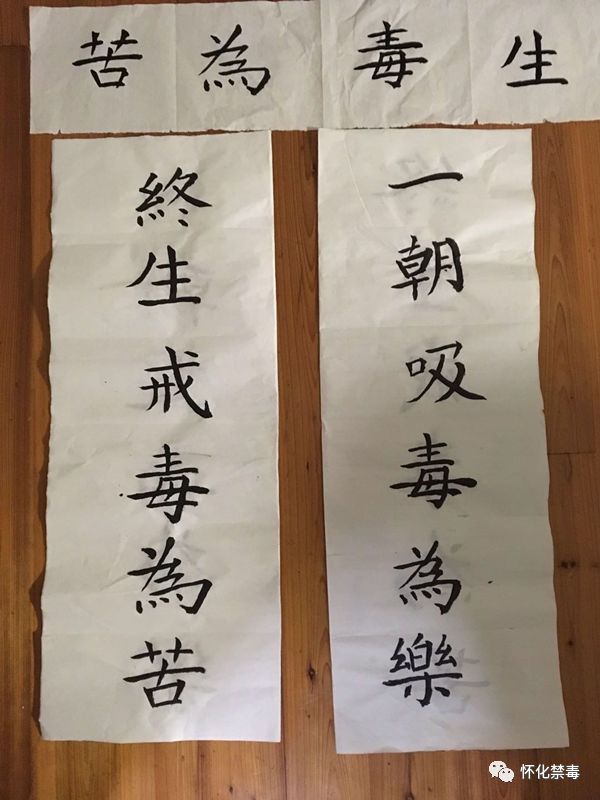 生毒為苦
一朝吸毒為樂
終生戒毒為苦
怀化禁毒